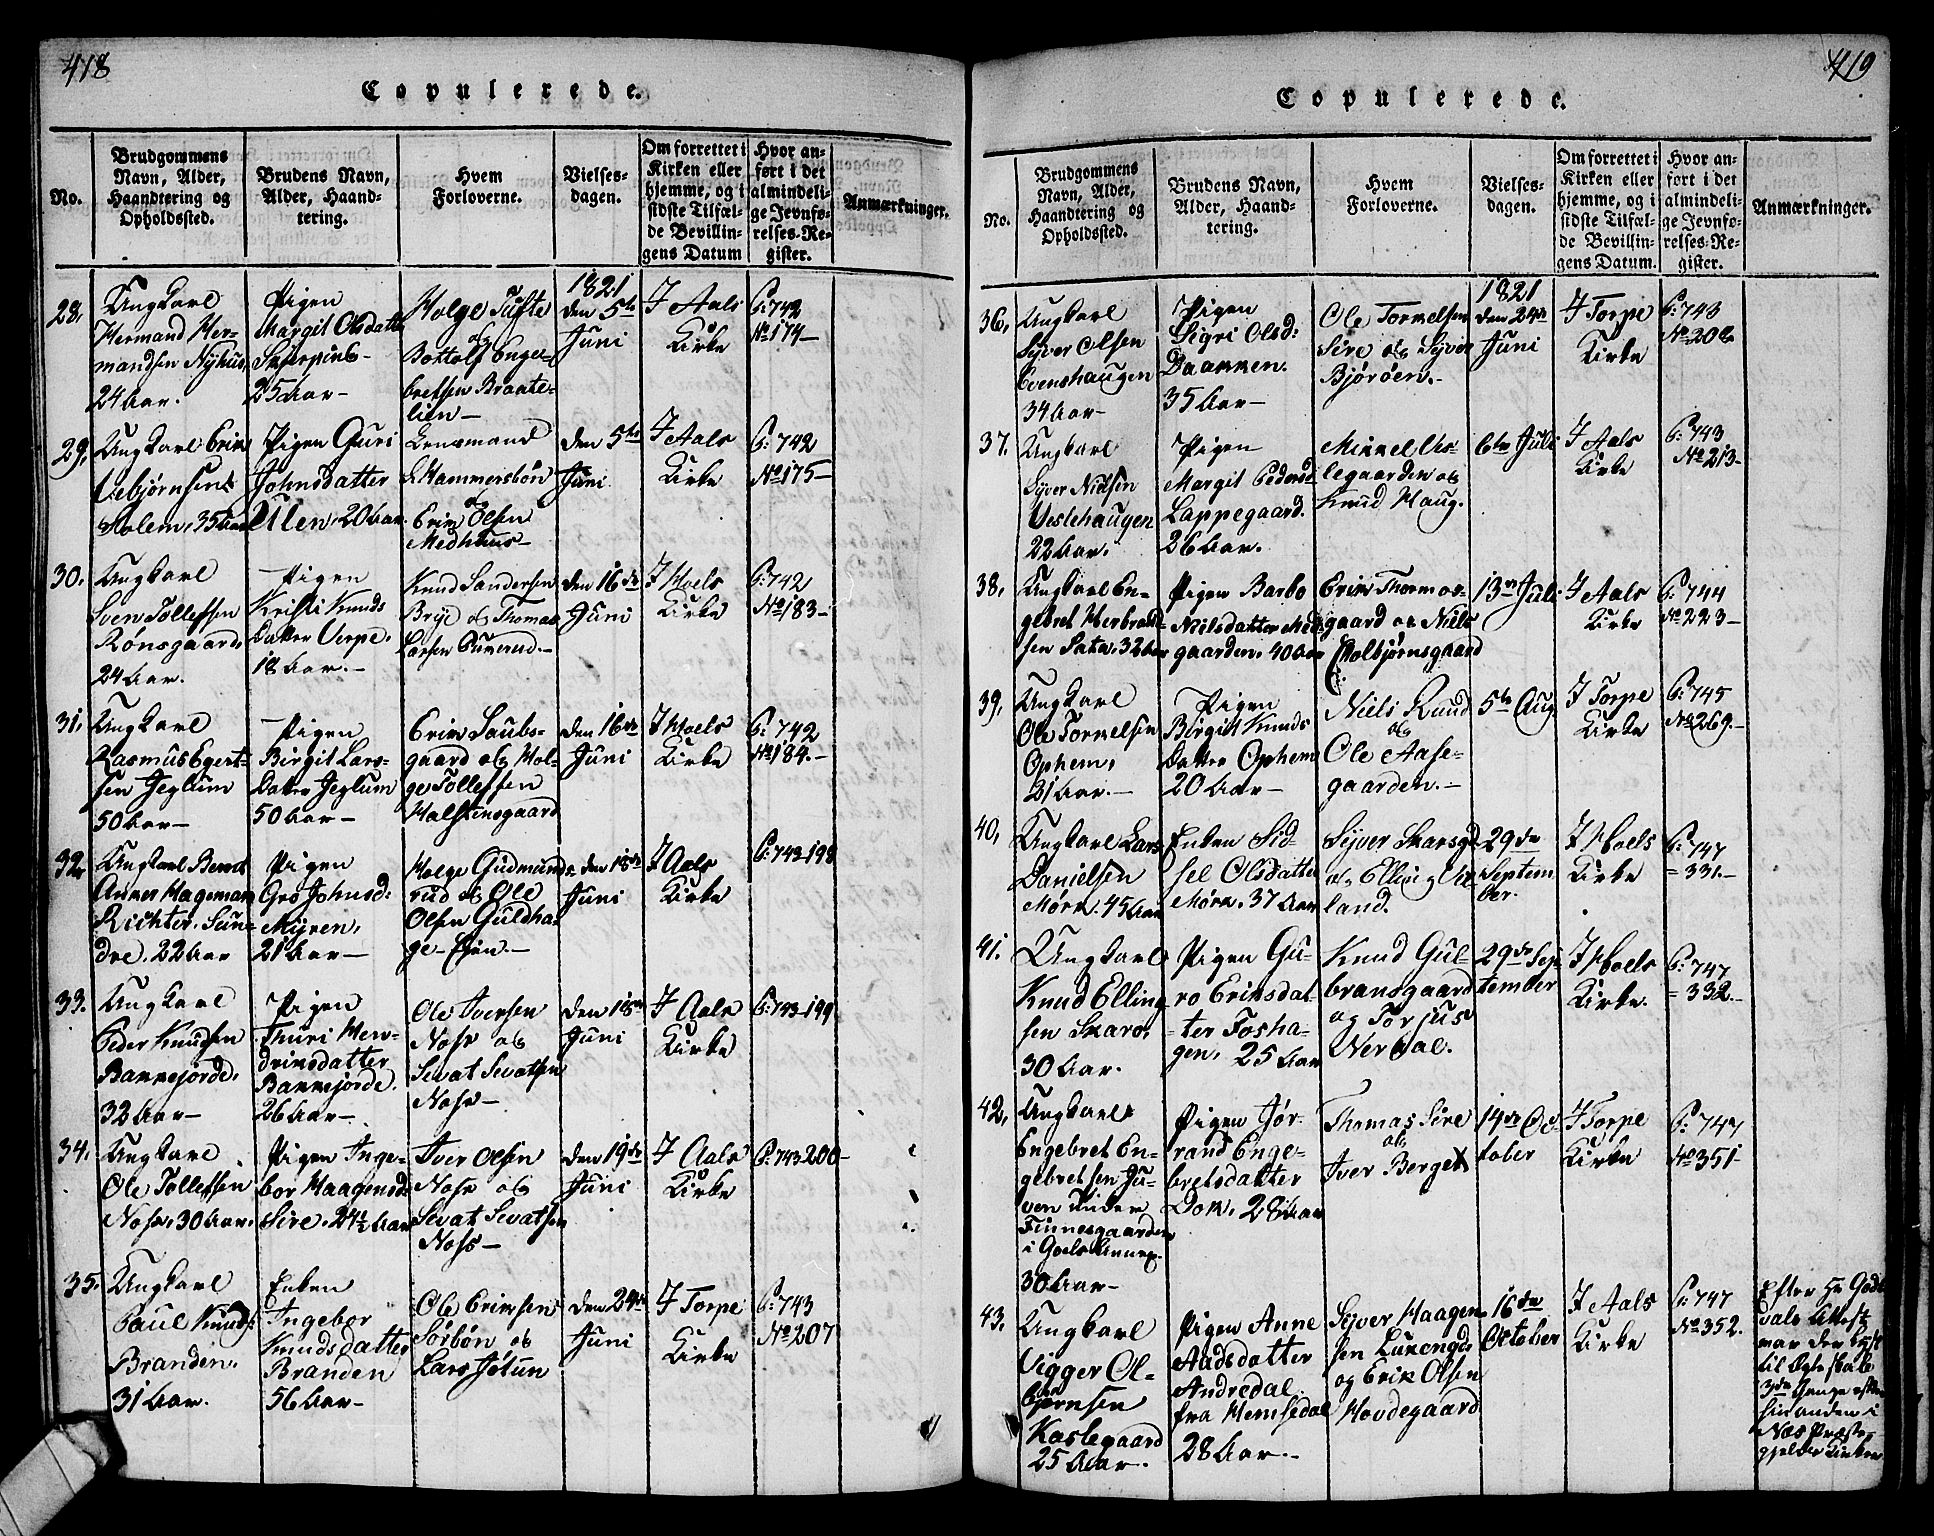 418
Copulerede.
No.
Brudgommens
Navn, Alder,
Haandtering og
Opholdssted.
Brudens Navn,
Alder, Haand-
tering.
Hvem
Forloverne.
Vielses-
dagen.
Om forrettet i
Kirken eller
hjemme, og i
sidste Tilfæl-
de Bevillin-
gens Datum
Hvor an-
ført i det
almindeli-
ge Jevnfø-
relses-Re-
gister.
Anmærkninger.
28.
Ungkarl
Hermand Her-
mandsen Nyhus,
24 Aar.
Pigen
Margit Olsdatte
25 Aar—
Holge Tufte
og
Bottolf Enge-
bretsen Braate-
lien—
1821
den 5te
Juni
I Aals
Kirke
P: 742
No 174—
29.
Ungkarl Erik
Vebjørnsen
Solem, 35 Aar
Pigen Guri
Johnsdatter
Ulen, 20 Aar.
Lensmand
Hammersbøn
og
Erik Olsen
Medhuus—
den 5te
Juni
I Aals
Kirke
P: 742
No 175—
30.
Ungkarl
Sven Tollefsen
Rønsgaard,
24 Aar.
Pigen
Kristi Knuds
Datter Verpe,
18 Aar.—
Knud Sandersen
Brye og Thomas
Larsen
den 16de
Juni
I Hoels
Kirke
P: 742
No 183—
31.
Ungkarl
Rasmus Egert-
sen Jeglum
50 Aar—
Pigen
Birgit Lars-
Datter Jeglum
50 Aar—
Erik Laubs-
gaard og Hol-
ge Tollefsen
Halstensgaard
den 16de
Juni
I Hoels
Kirke
P: 742
No 184.—
32.
Ungkarl Bernt
Anner Hageman
Richter, Sun-
dre. 22 Aar
Pigen
Gro Johnsd:
Myren,
21 Aar—
Holge Gudmunds
rud og Ole
Olsen Guldha-
ge-Eien.—
den 18de
Juni
I Aals
Kirke
P: 743-198
33.
Ungkarl
Peder Knudsen
Bakkejorde,
32 Aar—
Pigen
Thuri Hen-
driksdatter
Bakkejorde.
26 Aar—
Ole Iversen
Noss og
Sevat Sevatsen
Noss—
den 18de
Juni
I Aals
Kirke
P: 743-199
34.
Ungkarl
Ole Tollefsen
Noss, 30 Aar.
Pigen Inge-
bor Haagensd:
Sire, 24½ Aar
Iver Olsen
Noss og
Sevat Sevatsen
Noss—
den 19de
Juni
I Aals
Kirke
P: 743-200—
35.
Ungkarl
Poul Knuds:
Branden,
31 Aar.
Enken
Ingebor
Knudsdatter
Branden
56 Aar—
Ole Eriksen
Sørbøn og
Lars Jøtun
den 24de
Juni
I Torpe
Kirke
P: 743
No 207
419
Copulerede.
No.
Brudgommens
Navn, Alder,
Haandtering og
Opholdssted.
Brudens Navn,
Alder, Haand-
tering.
Hvem
Forloverne.
Vielses-
dagen.
Om forrettet i
Kirken eller
hjemme, og i
sidste Tilfæl-
de Bevillin-
gens Datum.
Hvor an-
ført i det
almindeli-
ge Jevnfø-
relses-Re-
gister.
Anmærkninger.
36.
Ungkarl
Syver Olsen
Evenshaugen
34 Aar—
Pigen
Sigri Olsd:
Baakken.
35 Aar—
Ole Torkelsen
Sire og Syver
Bjørøen.—
1821
den 24de
Juni
I Torpe
Kirke
P: 743
No 208
37.
Ungkarl
Syver Nielsen
Veslehaugen
22 Aar.
Pigen
Margit Pedersd
Lappegaard.
26 Aar.
Mikkel
legaarden og
Knud Haug.
6te Juli
I Aals
Kirke
P: 743
No 213—
38.
Ungkarl En-
gebret Herbrand-
sen Sata, 32 Aar
Pigen Barbo
Nielsdatter Med-
gaarden, 40 Aar
Erik Thormos-
gaard og Niels
Kolbjørnsgaard
13de Juli
I Aals
Kirke
P: 744
No 223—
39.
Ungkarl
Ole Torkelsen
Ophem,
31 Aar.—
Pigen
Birgit Knuds
Datter Ophem
20 Aar—
Niels Ruud
og
Ole Aase-
gaarden.—
5te Aug
I Torpe
Kirke
P: 745
No 269.—
40.
Ungkarl Lars
Danielsen
Mørk. 45 Aar
Enken Sid-
sel Olsdatter
Mørk. 37 Aar
Syver Skarsgd
og Elling Vil
land.
29de
Septem
ber.
I Hoels
Kirke
P: 747
= 331.—
41.
Ungkarl
Knud Elling
sen Skaro,
30 Aar.
Pigen Gu-
ro Eriksdat-
ter Fosha-
gen, 25 Aar
Knud Gul-
bransgaard
og Torjus
Werdal.
29de Sep-
tember
I Hoels
Kirke.
P: 747
= 332.—
42.
Ungkarl
Engebret En-
gebretsen Ju-
ven under
Finnesgaarden
i Goels Annex.
30 Aar—
Pigen Jør-
rand Enge-
bretsdatter
Dok, 28 Aar
Thomas Sire
og
Iver Berget
14de Oc-
tober
I Torpe
Kirke
P: 747
No 351—
43.
Ungkarl
Vigger Ol-
bjørnsen
Kaslegaard
25 Aar.
Pigen Anne
Aadsdatter
Andredal
fra Hemsedal
28 Aar.—
Syver Haagen
sen
og Erik Olsen
Hovdegaard
16de
October
I Aals
Kirke
P: 747
No 352.
Efter Hr
vals Attest
var der lyst
til Ægteskab
3de Gange
hinanden i
Næs Præste-
gjelds Kirker